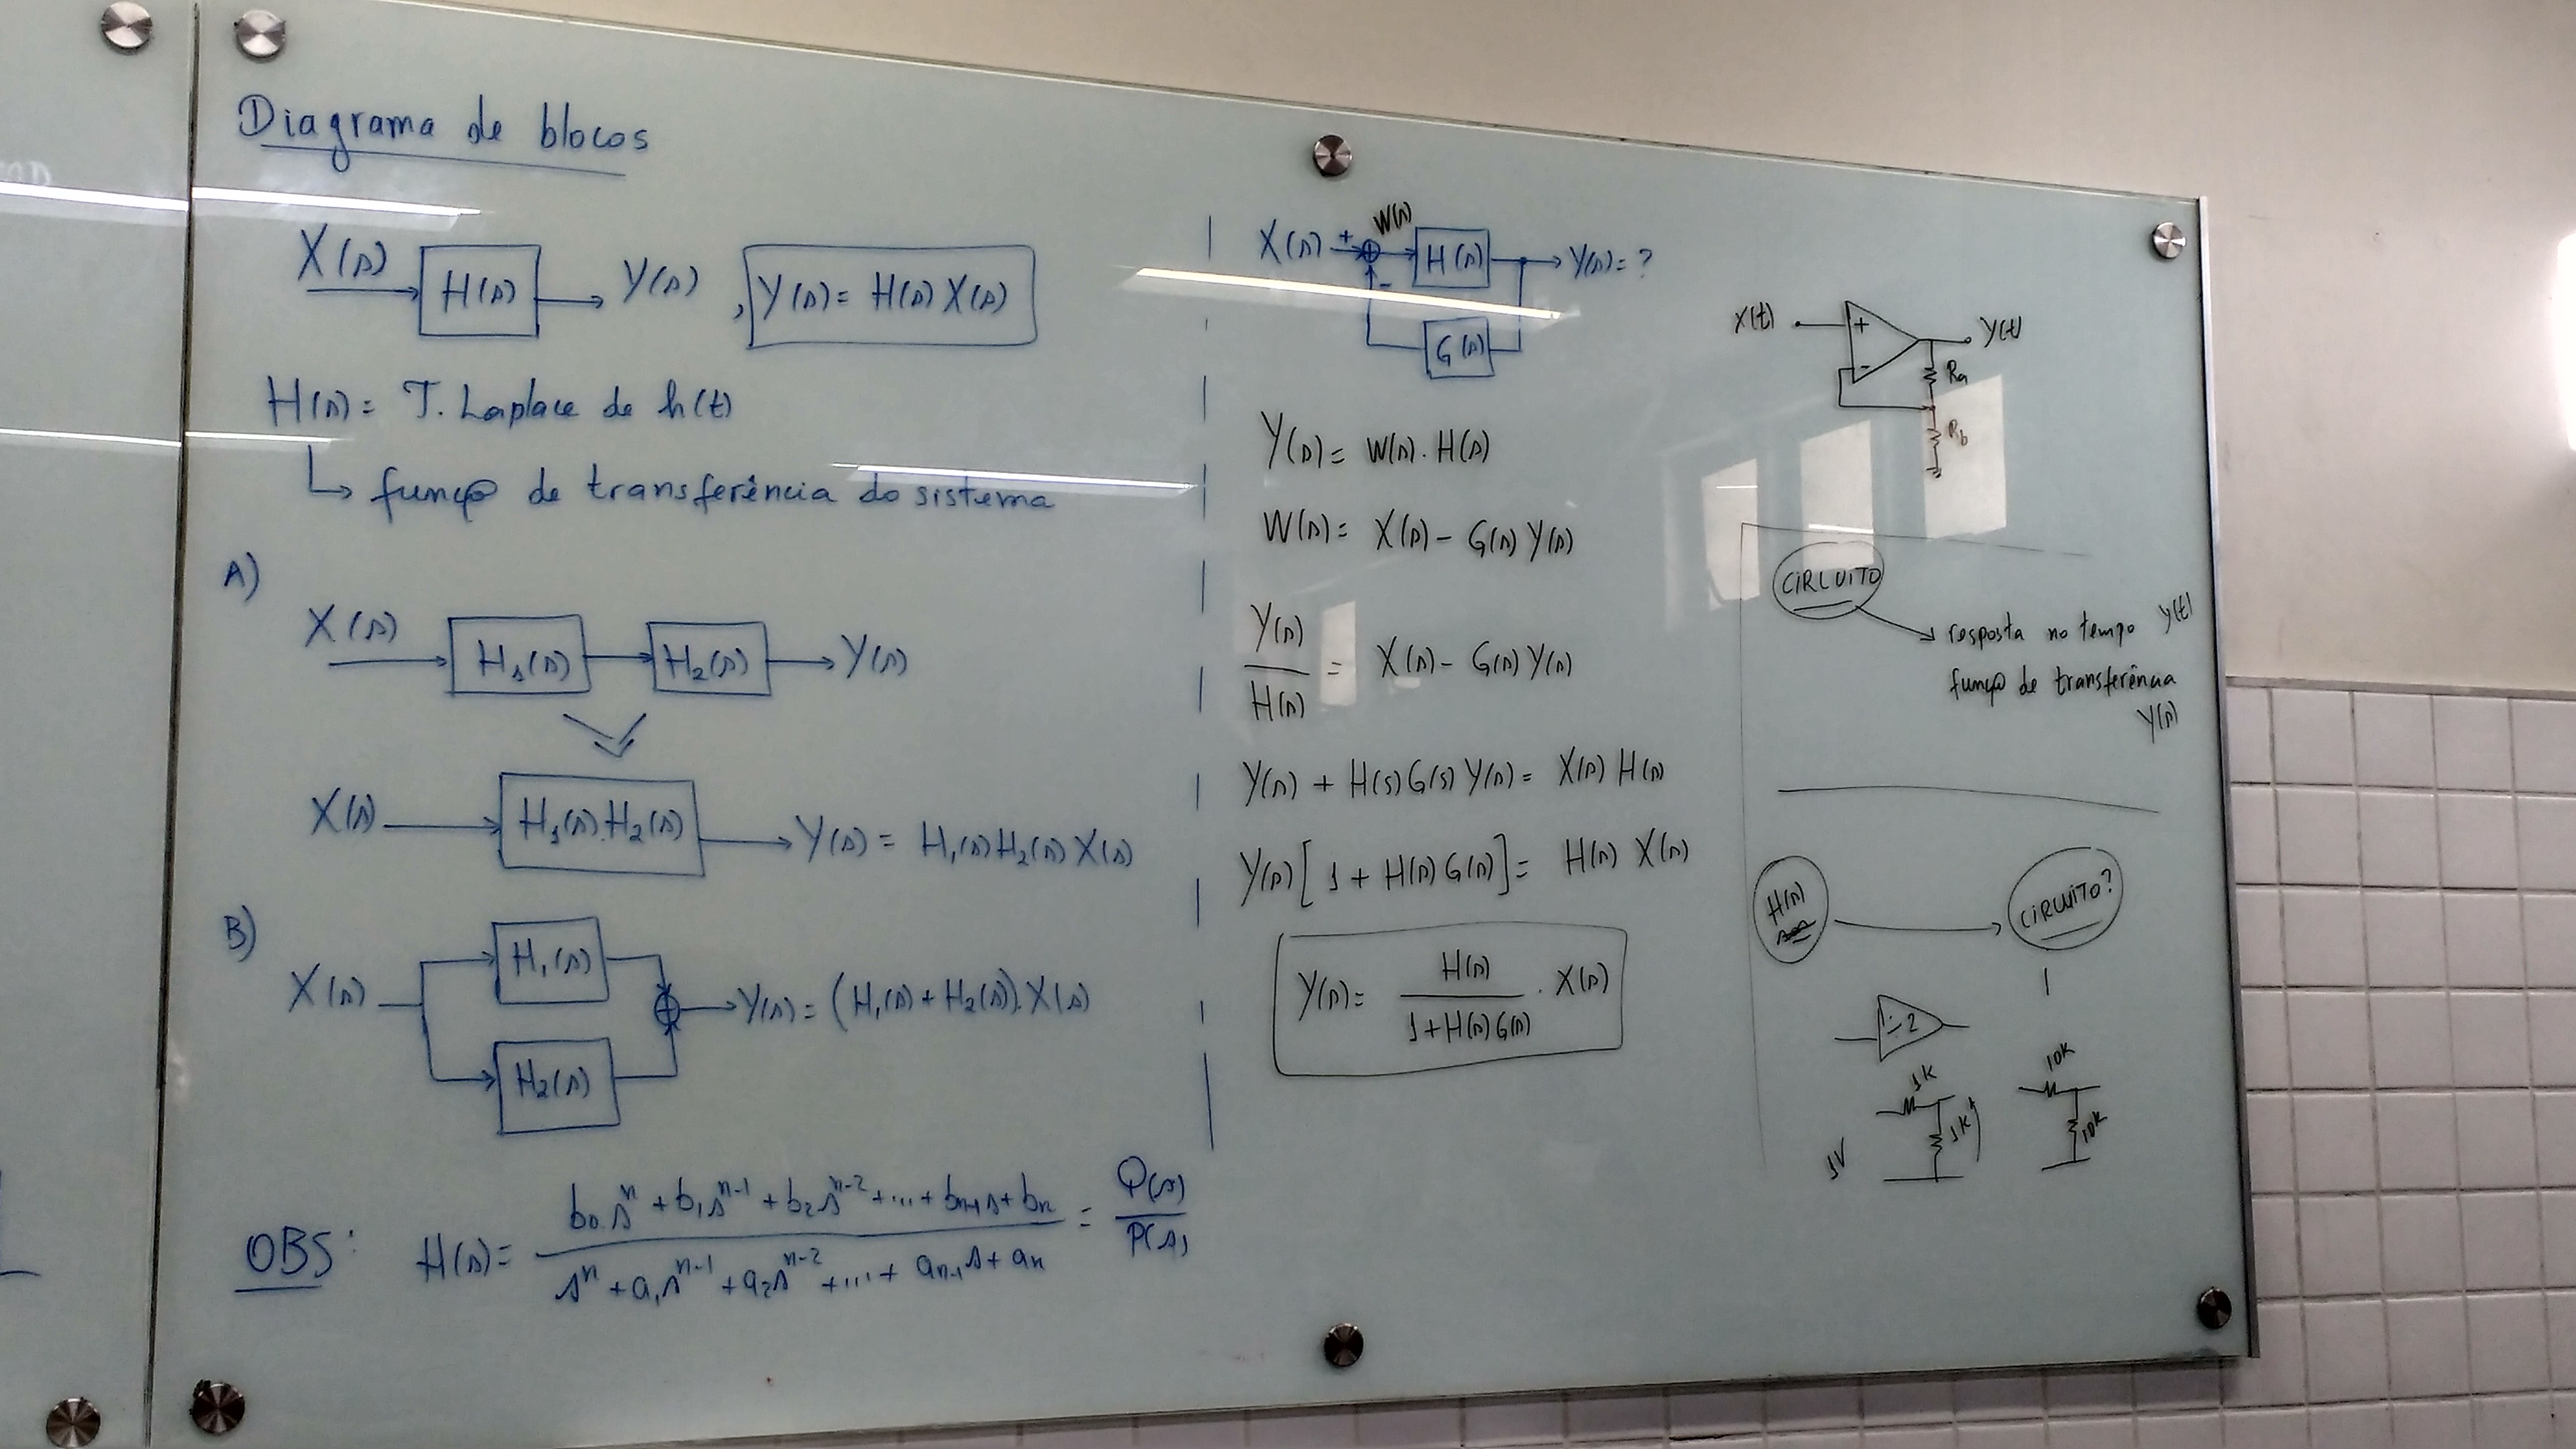 Diagrama de blocos
X(s) H(s) Y(s) , Y(s) = H(s) X(s)
H(s) = T. Laplace de h(t)
↳ função de transferência do sistema
A)
X(s) H₁(s) H₂(s) Y(s)
X(s) H₁(s).H₂(s) Y(s) = H₁(s)H₂(s)X(s)
B)
H₁(s)
X(s) + Y(s) = (H₁(s) + H₂(s)).X(s)
H₂(s)
OBS: H(s) = (b₀sⁿ + b₁sⁿ⁻¹ + b₂sⁿ⁻² + ... + bₙ₋₁s + bₙ) / (sⁿ + a₁sⁿ⁻¹ + a₂sⁿ⁻² + ... + aₙ₋₁s + aₙ) = Q(s) / P(s)
W(s)
X(s) + H(s) Y(s) = ?
-
G(s)
Y(s) = W(s) . H(s)
W(s) = X(s) - G(s) Y(s)
Y(s) / H(s) = X(s) - G(s) Y(s)
Y(s) + H(s) G(s) Y(s) = X(s) H(s)
Y(s) [1 + H(s) G(s)] = H(s) X(s)
Y(s) = H(s) / 1 + H(s) G(s) . X(s)
x(t) + - y(t)
Ra
Rb
CIRCUITO
resposta no tempo y(t)
função de transferência
Y(s)
H(s) CIRCUITO?
÷2
1K 10K
1K 10K
1V